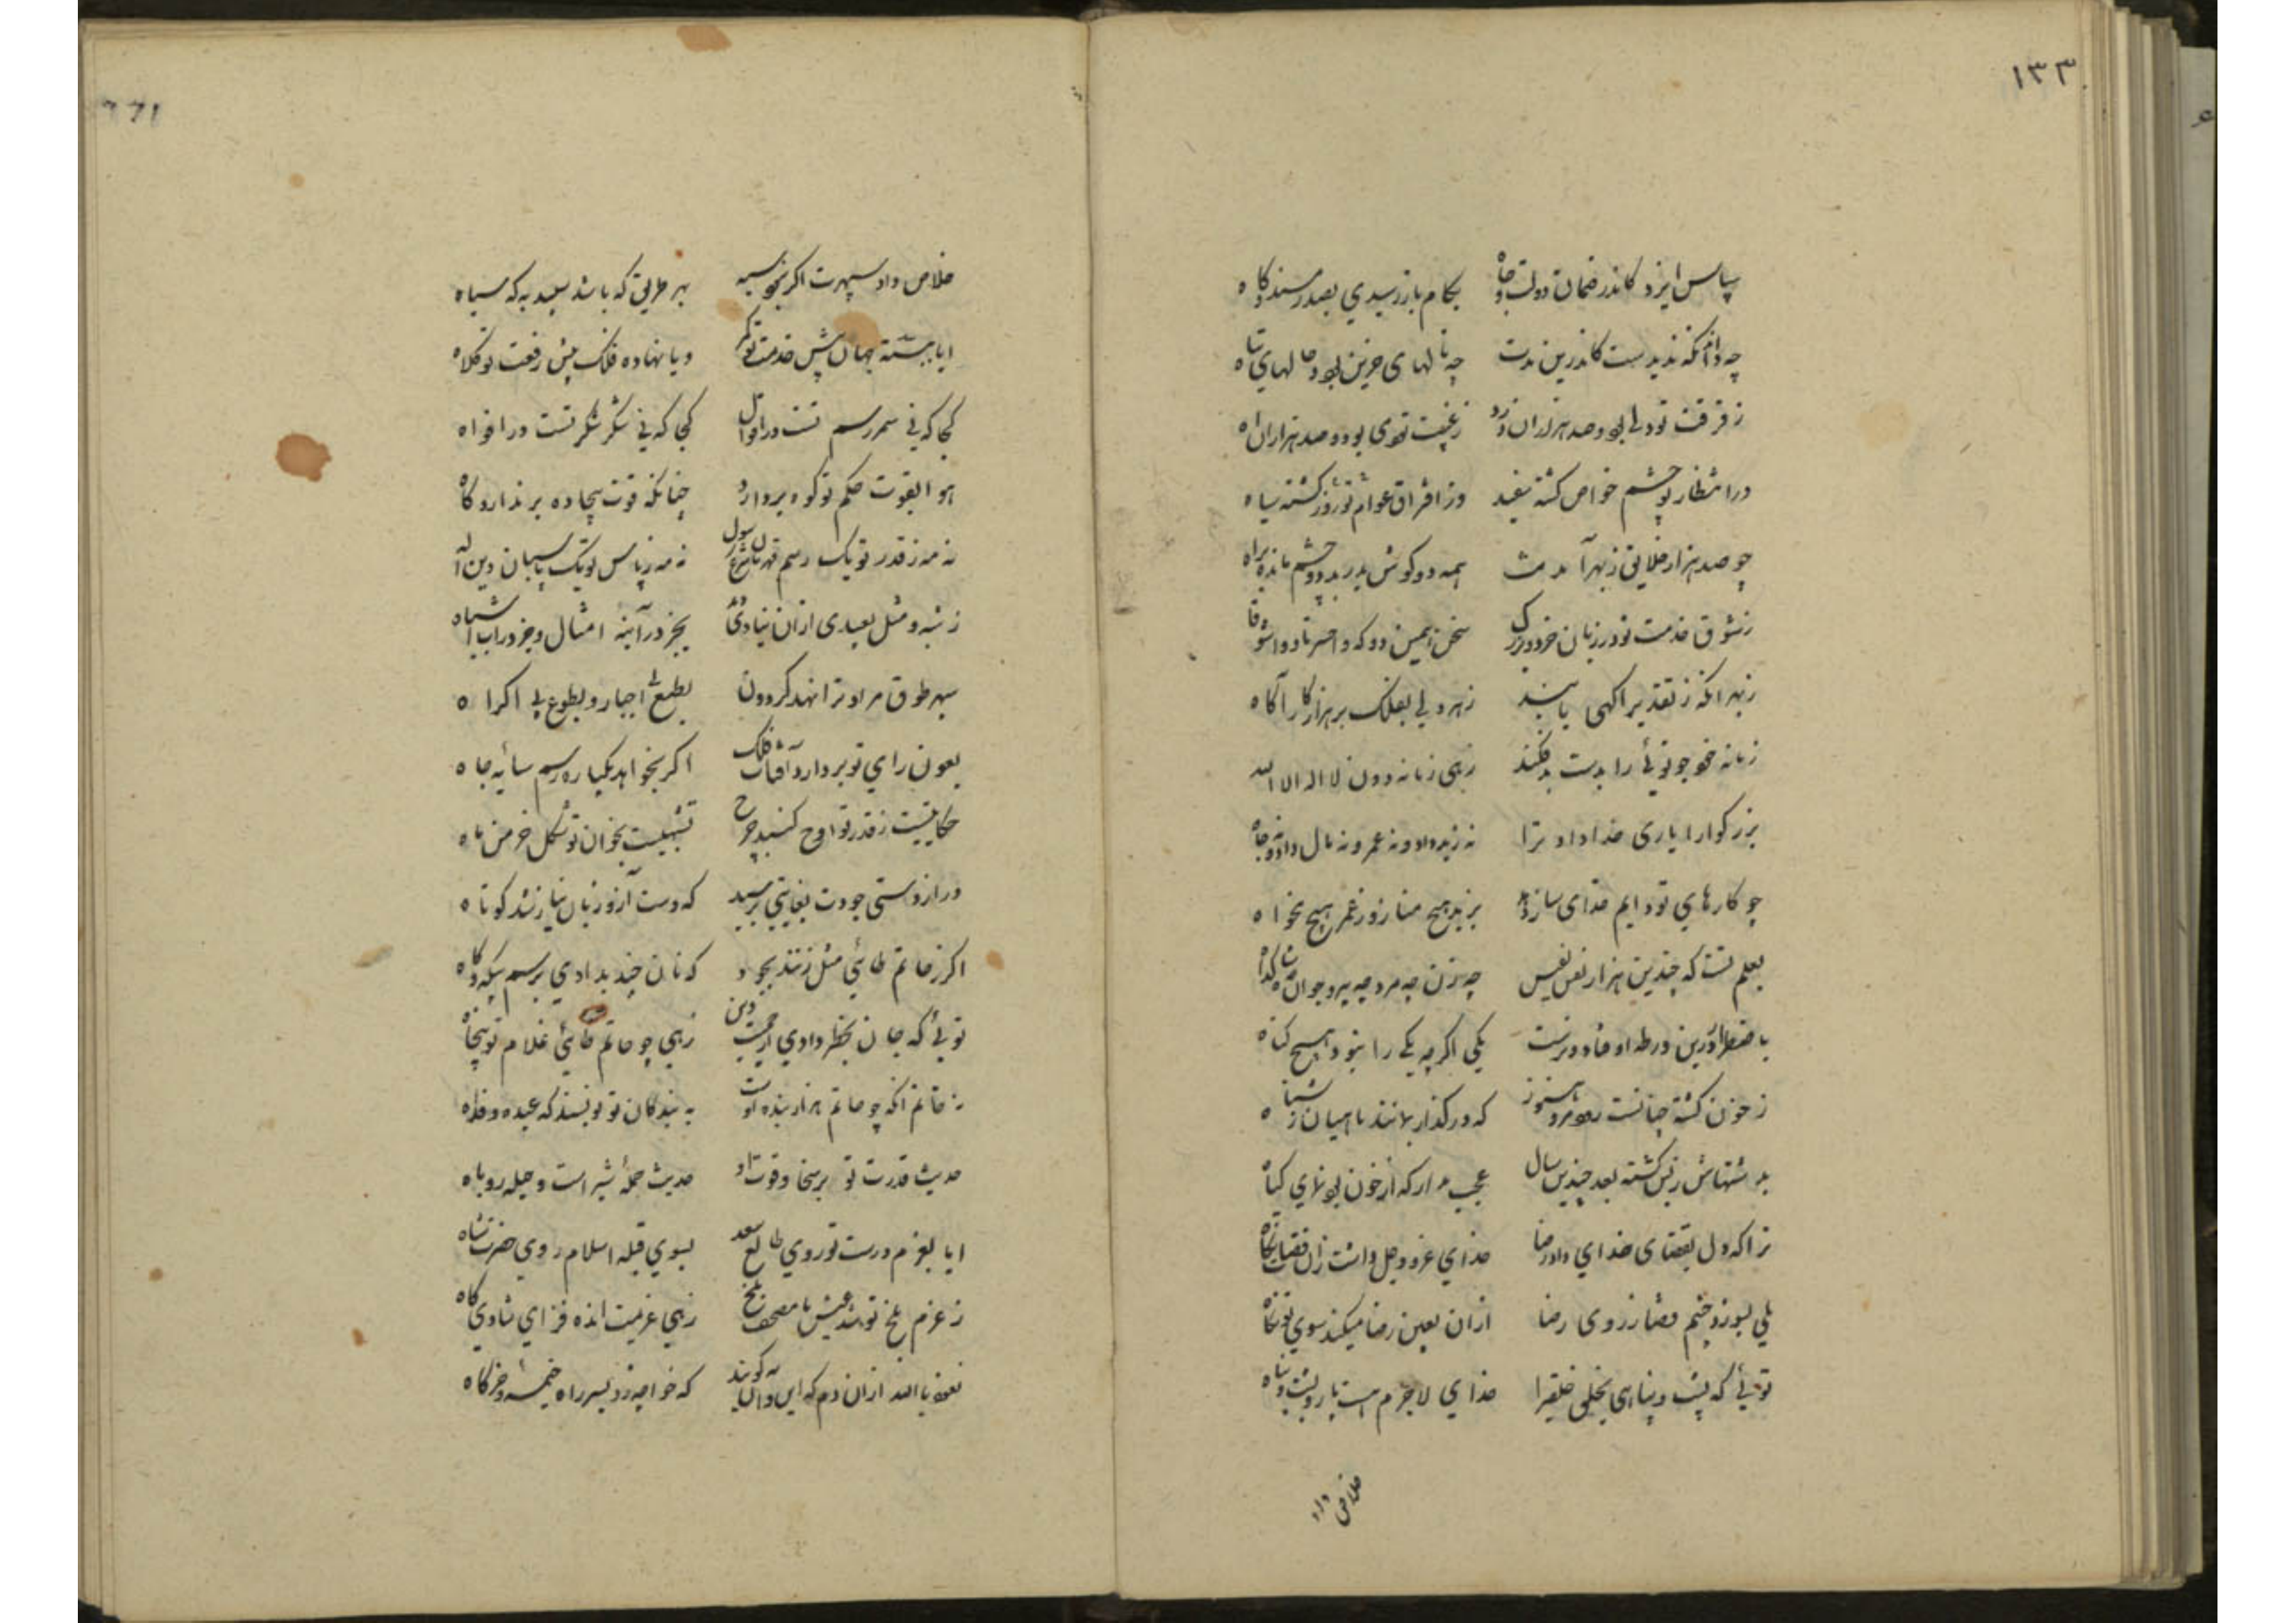 ١٣٣
سپاس ایزد کاندر ضمان دولت و جاه بکام باز رسیدي بصدر مسند و کاه
چه داند آنکه ندیدست کاندرین مدت چه نالهای حزین بود و حالهای تباه
ز فرقت تو دلی بود و صد هزاران درد ز غیبت تو دمی بود و صد هزاران اه
در انتظار تو چشم خواص کشته سفید وز افراق عوام تو روز کشته سیاه
چو صد هزار خلایق ز بهر آمدنت همه دو کوش بدر بر دو چشم مانده براه
ز شوق خدمت تو در زبان خرد و بزرک سخن همین دو که وا حسرتا و وا شوقاه
ز بهر آنکه ز تقدیر اکهی یابند زهر دلی بفلک بر هزار کار آکاه
زمانه خو چو توئی را بدست بد فکند زهی زمانه دون لا اله الا الله
بزرکوارا یاری خدا داد ترا نه زید داد و نه عمر و نه مال داد و نه جاه
چو کارهاي تو دایم خدای سازد بزید هیچ مناز و ز عمر هیچ مخواه
بعلم تست که چندین هزار نفس نفیس چه زن چه مرد چه پیر و جوان چه شاه و کدا
با ضطرار درین ورطه اوفتاد و نرست یکی اکرچه یکی را نبود هیچ کناه
ز خون کشته چنانست هنوز که در کذار بمانند ماهیان ز شناه
بدشتهاش ز بس کشته بعد چندین سال عجب مدار که از خون بود نماي کیاه
ترا که دل بقضای خداي داد رضا خداي عز و جل داشت زان قضات نکاه
بلی بسوزد چشم قضا ز روی رضا ازان بعین رضا میکند سوي تو نکاه
توئی که پشت و پناهی بخلی خلقرا خداي لاجرمت یار و پشت و پناه
خلاص داد
خلاص داد سپهرت اکر نخواست سیه بهر طریق که باشد سپید به که سیاه
ایا ببسته جهان پیش خدمت تو کمر ویا نهاده فلک پیش رفعت تو کلاه
کجا که نی سمر رسم تست در اقوال کجا که نی شکر شکر تست در افواه
هوا بقوت حکم تو کوه بردارد چنانکه قوت بیجاده برندارد کاه
نه مه ز قدر تو یک رسم قهرمان شرع رسول نه مه ز پاس تو یک پاسبان دین اله
ز شبه و مثل بعیدی ازان نیاري دید بجز در آینه امثال و جز در اب اشباه
سپهر طوق مراد ترا نهد کردون بطبع بی اجبار و بطوع بی اکراه
بعون راي تو بردارد آفتاب فلک اکر بخواهد یکباره رسم سایه جاه
حکایتیست ز قدر تو اوج کنبد چرخ تشبهیست بخوان تو شکل خرمن ماه
دراز دستی جودت بغایتی برسید که دست آز و زبان نیاز شد کوتاه
اکر ز حاتم طائی مثل زنند بجود که نان چند بدادي برسم بیکه و کاه
توئی که جان بخطر دادي از حمیت دین زهي چو حاتم طائی غلام تو پنجاه
نه حاتم آنکه چو حاتم هزار بنده اوست به بندکان تو نویسند که عبده و فداه
حدیث قدرت تو بر سخا و قوت او حدیث حملهٔ شیر است و حیله روباه
ایا بعزم درست تو روي طالع سعد بسوي قبله اسلام روي حضرت شاه
ز عزم بلخ تو شد عیش ما مصحف بلخ زهي عزیمت انده فزاي شادي کاه
نعوذ بالله ازان دم که این و آن کویند که خواجه زد بسر راه خیمه و خرکاه